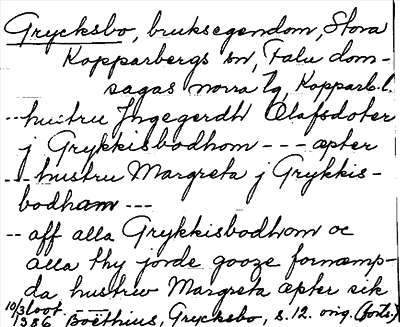 Grycksbo, bruksegendom, Stora
Kopparbergs sn, Falu dom-
sagas norra tg, Kopparb. l.
-- hustru Jngegerdh Olafsdoter
j Grykkisbodhom --- æpter
-- hustru Margreta j Grykkis-
bodham ---
-- aff alla Grykkisbodhom oc
alla thy jorde gooze fornæmp-
da hustrw Margreta æpter sik
loot. ----
10/3 1386 Boëthius, Grycksbo, s. 12. orig. (forts.)